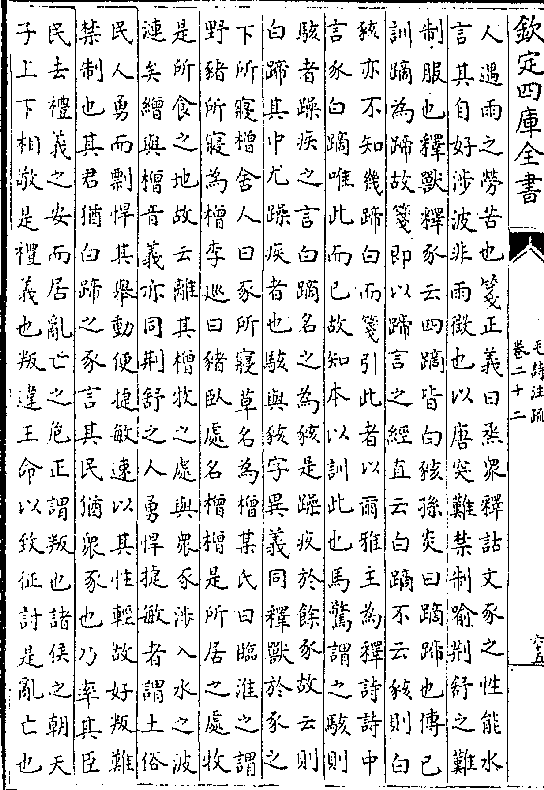 欽定四庫全書
毛詩注疏
卷二十二
人遇雨之勞苦也箋正義曰烝衆釋詁文豕之性能水
言其自好渉波非雨徵也以唐突難禁制喻荆舒之難
制服也釋獸釋豕云四蹢皆白豥孫炎曰蹢蹄也傳已
訓蹢為蹄故箋即以蹄言之經直云白蹢不云豥則白
豥亦不知幾蹄白而箋引此者以爾雅主為釋詩詩中
言豕白蹢唯此而已故知本以訓此也馬驚謂之駭則
駭者躁疾之言白蹢名之為豥是躁疾於餘豕故云則
白蹄其中尤躁疾者也駭與豥字異義同釋獸於豕之
下所寢橧舍人曰豕所寢草名為橧某氏曰臨淮之謂
野豬所寢為橧李廵曰豬臥處名橧橧是所居之處牧
是所食之地故云離其橧牧之處與衆豕渉入水之波
漣矣繒與橧音義亦同荆舒之人勇悍捷敏者謂土俗
民人勇而剽悍其舉動便捷敏速以其性輕故好叛難
禁制也其君猶白蹄之豕言其民猶衆豕也乃率其臣
民去禮義之安而居亂亡之危正謂叛也諸侯之朝天
子上下相敬是禮義也叛違王命以致征討是亂亡也